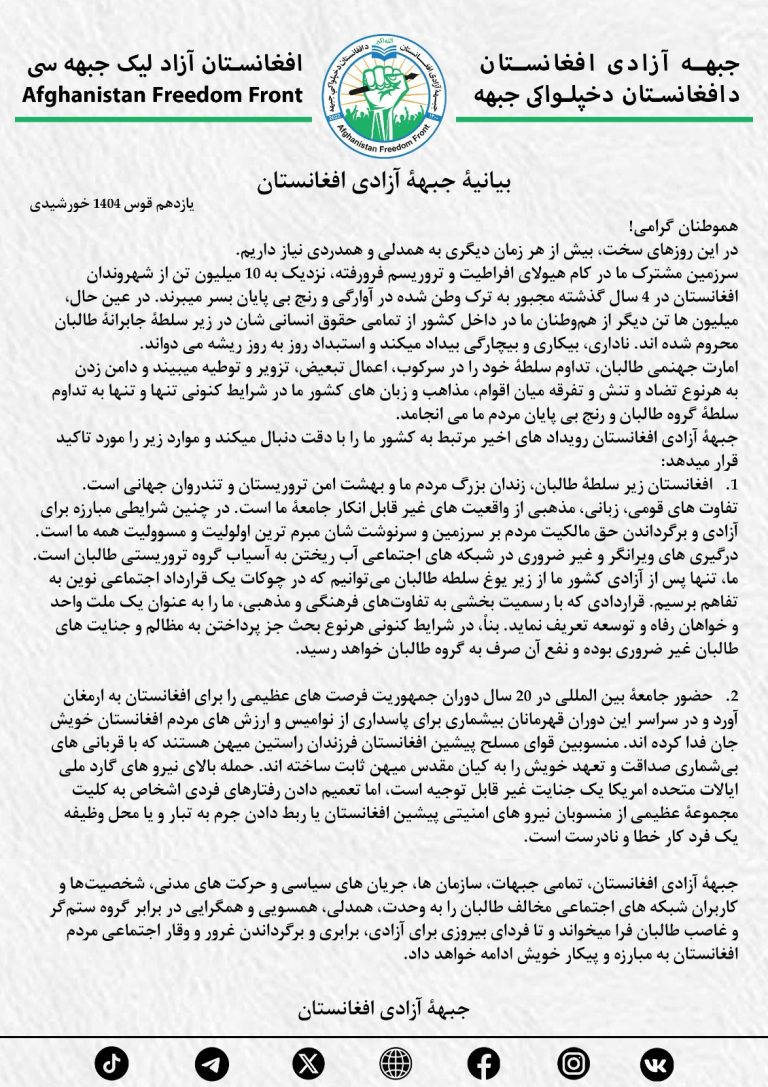 جبهـه آزادی افغانسـتان
دافغانسـتان دخپلـواکۍ جبهه
افغانسـتان آزاد لیک جبهه سی
Afghanistan Freedom Front
الله اکبر
جبهۀ آزادی افغانستان
دافغانستان دخپلواکۍ جبهه
Afghanistan Freedom Front
بیانیۀ جبهۀ آزادی افغانستان
یازدهم قوس 1404 خورشیدی
هموطنان گرامی!
در این روزهای سخت، بیش از هر زمان دیگری به همدلی و همدردی نیاز داریم.
سرزمین مشترک ما در کام هیولای افراطیت و تروریسم فرورفته، نزدیک به 10 میلیون تن از شهروندان
افغانستان در 4 سال گذشته مجبور به ترک وطن شده در آوارگی و رنج بی پایان بسر میبرند. در عین حال،
میلیون ها تن دیگر از هم‌وطنان ما در داخل کشور از تمامی حقوق انسانی شان در زیر سلطۀ جابرانۀ طالبان
محروم شده اند. ناداری، بیکاری و بیچارگی بیداد میکند و استبداد روز به روز ریشه می دواند.
امارت جهنمی طالبان، تداوم سلطۀ خود را در سرکوب، اعمال تبعیض، تزویر و توطیه میبیند و دامن زدن
به هرنوع تضاد و تنش و تفرقه میان اقوام، مذاهب و زبان های کشور ما در شرایط کنونی تنها و تنها به تداوم
سلطۀ گروه طالبان و رنج بی پایان مردم ما می انجامد.
جبهۀ آزادی افغانستان رویداد های اخیر مرتبط به کشور ما را با دقت دنبال میکند و موارد زیر را مورد تاکید
قرار میدهد:
1. افغانستان زیر سلطۀ طالبان، زندان بزرگ مردم ما و بهشت امن تروریستان و تندروان جهانی است.
تفاوت های قومی، زبانی، مذهبی از واقعیت های غیر قابل انکار جامعۀ ما است. در چنین شرایطی مبارزه برای
آزادی و برگرداندن حق مالکیت مردم بر سرزمین و سرنوشت شان مبرم ترین اولولیت و مسوولیت همه ما است.
درگیری های ویرانگر و غیر ضروری در شبکه های اجتماعی آب ریختن به آسیاب گروه تروریستی طالبان است.
ما، تنها پس از آزادی کشور ما از زیر یوغ سلطه طالبان می‌توانیم که در چوکات یک قرارداد اجتماعی نوین به
تفاهم برسیم. قراردادی که با رسمیت بخشی به تفاوت‌های فرهنگی و مذهبی، ما را به عنوان یک ملت واحد
و خواهان رفاه و توسعه تعریف نماید. بنأ، در شرایط کنونی هرنوع بحث جز پرداختن به مظالم و جنایت های
طالبان غیر ضروری بوده و نفع آن صرف به گروه طالبان خواهد رسید.
2. حضور جامعۀ بین المللی در 20 سال دوران جمهوریت فرصت های عظیمی را برای افغانستان به ارمغان
آورد و در سراسر این دوران قهرمانان بیشماری برای پاسداری از نوامیس و ارزش های مردم افغانستان خویش
جان فدا کرده اند. منسوبین قوای مسلح پیشین افغانستان فرزندان راستین میهن هستند که با قربانی های
بی‌شماری صداقت و تعهد خویش را به کیان مقدس میهن ثابت ساخته اند. حمله بالای نیرو های گارد ملی
ایالات متحده امریکا یک جنایت غیر قابل توجیه است، اما تعمیم دادن رفتارهای فردی اشخاص به کلیت
مجموعۀ عظیمی از منسوبان نیرو های امنیتی پیشین افغانستان یا ربط دادن جرم به تبار و یا محل وظیفه
یک فرد کار خطا و نادرست است.
جبهۀ آزادی افغانستان، تمامی جبهات، سازمان ها، جریان های سیاسی و حرکت های مدنی، شخصیت‌ها و
کاربران شبکه های اجتماعی مخالف طالبان را به وحدت، همدلی، همسویی و همگرایی در برابر گروه ستم‌گر
و غاصب طالبان فرا میخواند و تا فردای بیروزی برای آزادی، برابری و برگرداندن غرور و وقار اجتماعی مردم
افغانستان به مبارزه و پیکار خویش ادامه خواهد داد.
جبهۀ آزادی افغانستان